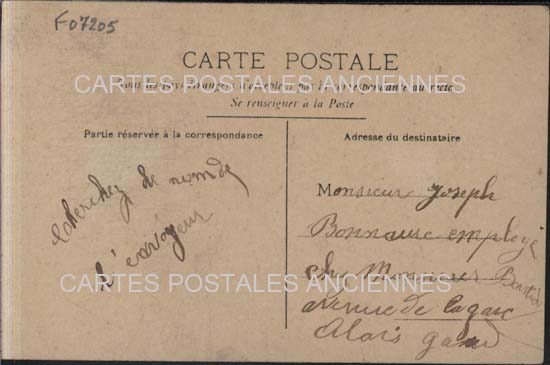 F07205
CARTE POSTALE
Tous les pays étrangers n'acceptent pas la correspondance au recto
Se renseigner à la Poste
CARTES POSTALES ANCIENNES
Partie réservée à la correspondance
Adresse du destinataire
cherchez le nom de
l'envoyeur
Monsieur Joseph
Bonnaure employé
chez Monsieur
avenue de la gare
Alais gard
CARTES POSTALES ANCIENNES